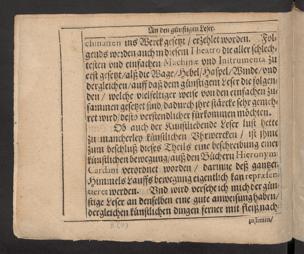 An den günstigen Leser.
chinatien ins Werck gesetzt / erzehlet worden. Fol-
gends worden auch in diesem Theatro die aller schlech-
testen und einfachen Machinæ und Instrumenta zu
erst gesetzt / alß die Wage / Hebel / Haspel / Winde / und
dergleichen / auff daß dem günstigen Leser die folgen-
den / welche vielfältiger weise von den einfachen zu-
sammen gesetzt sind / dadurch ihre stärcke sehr gemeh-
ret wird / desto verstendlicher fürkommen möchten.
Ob auch der Kunstliebende Leser lust hette
zu mancherley künstlichen Uhrwercken / ist ihme
zum beschluß dieses Theils eine beschreibung einer
künstlichen bewegung / auß den Büchern Hieronym.
Cardani verordnet worden / darinne deß gantzen
Himmels Lauffs bewegung eigentlich kan repræsen-
tieret werden. Und wird versehe ich mich der gün-
stige Leser an denselben eine gute anweisung haben /
dergleichen künstlichen dingen ferner mit fleiß nach-